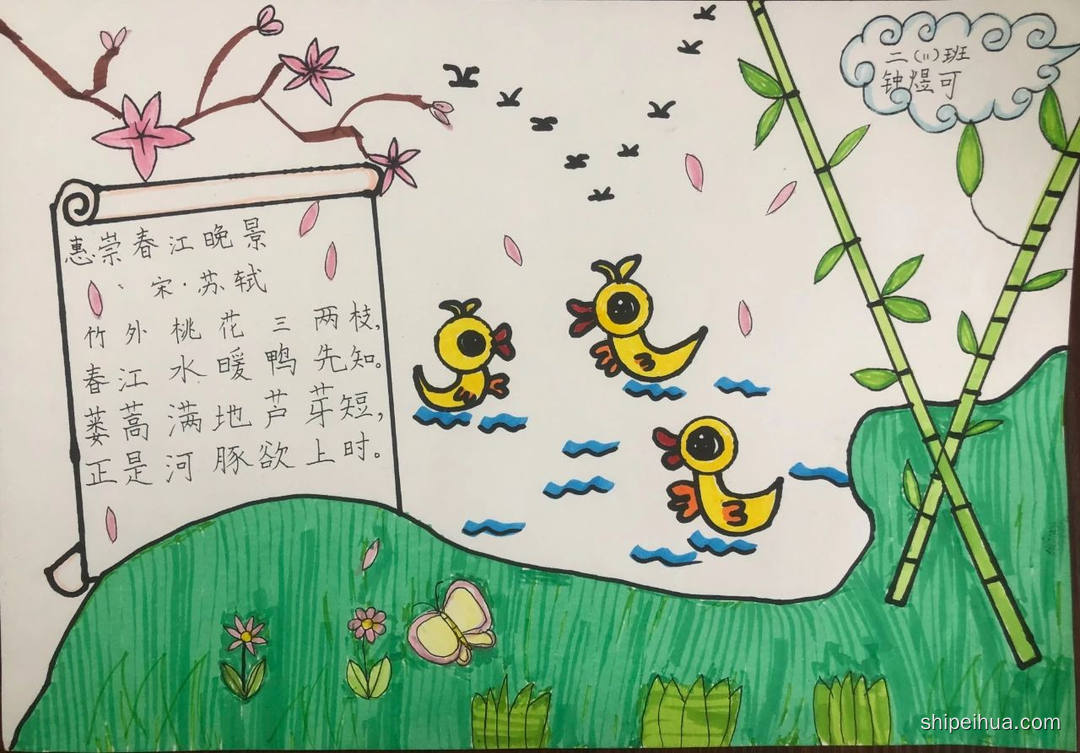 惠崇春江晚景
宋·苏轼
竹外桃花三两枝,
春江水暖鸭先知。
蒌蒿满地芦芽短,
正是河豚欲上时。
二(11)班
钟煜可
shipeihua.com